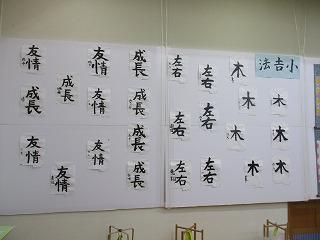 法吉小
友情
友情
成長
成長
友情
友情
成長
成長
友情
友情
成長
友情
成長
左右
左右
木
木
木
左右
左右
木
木
左右
左右
木
木